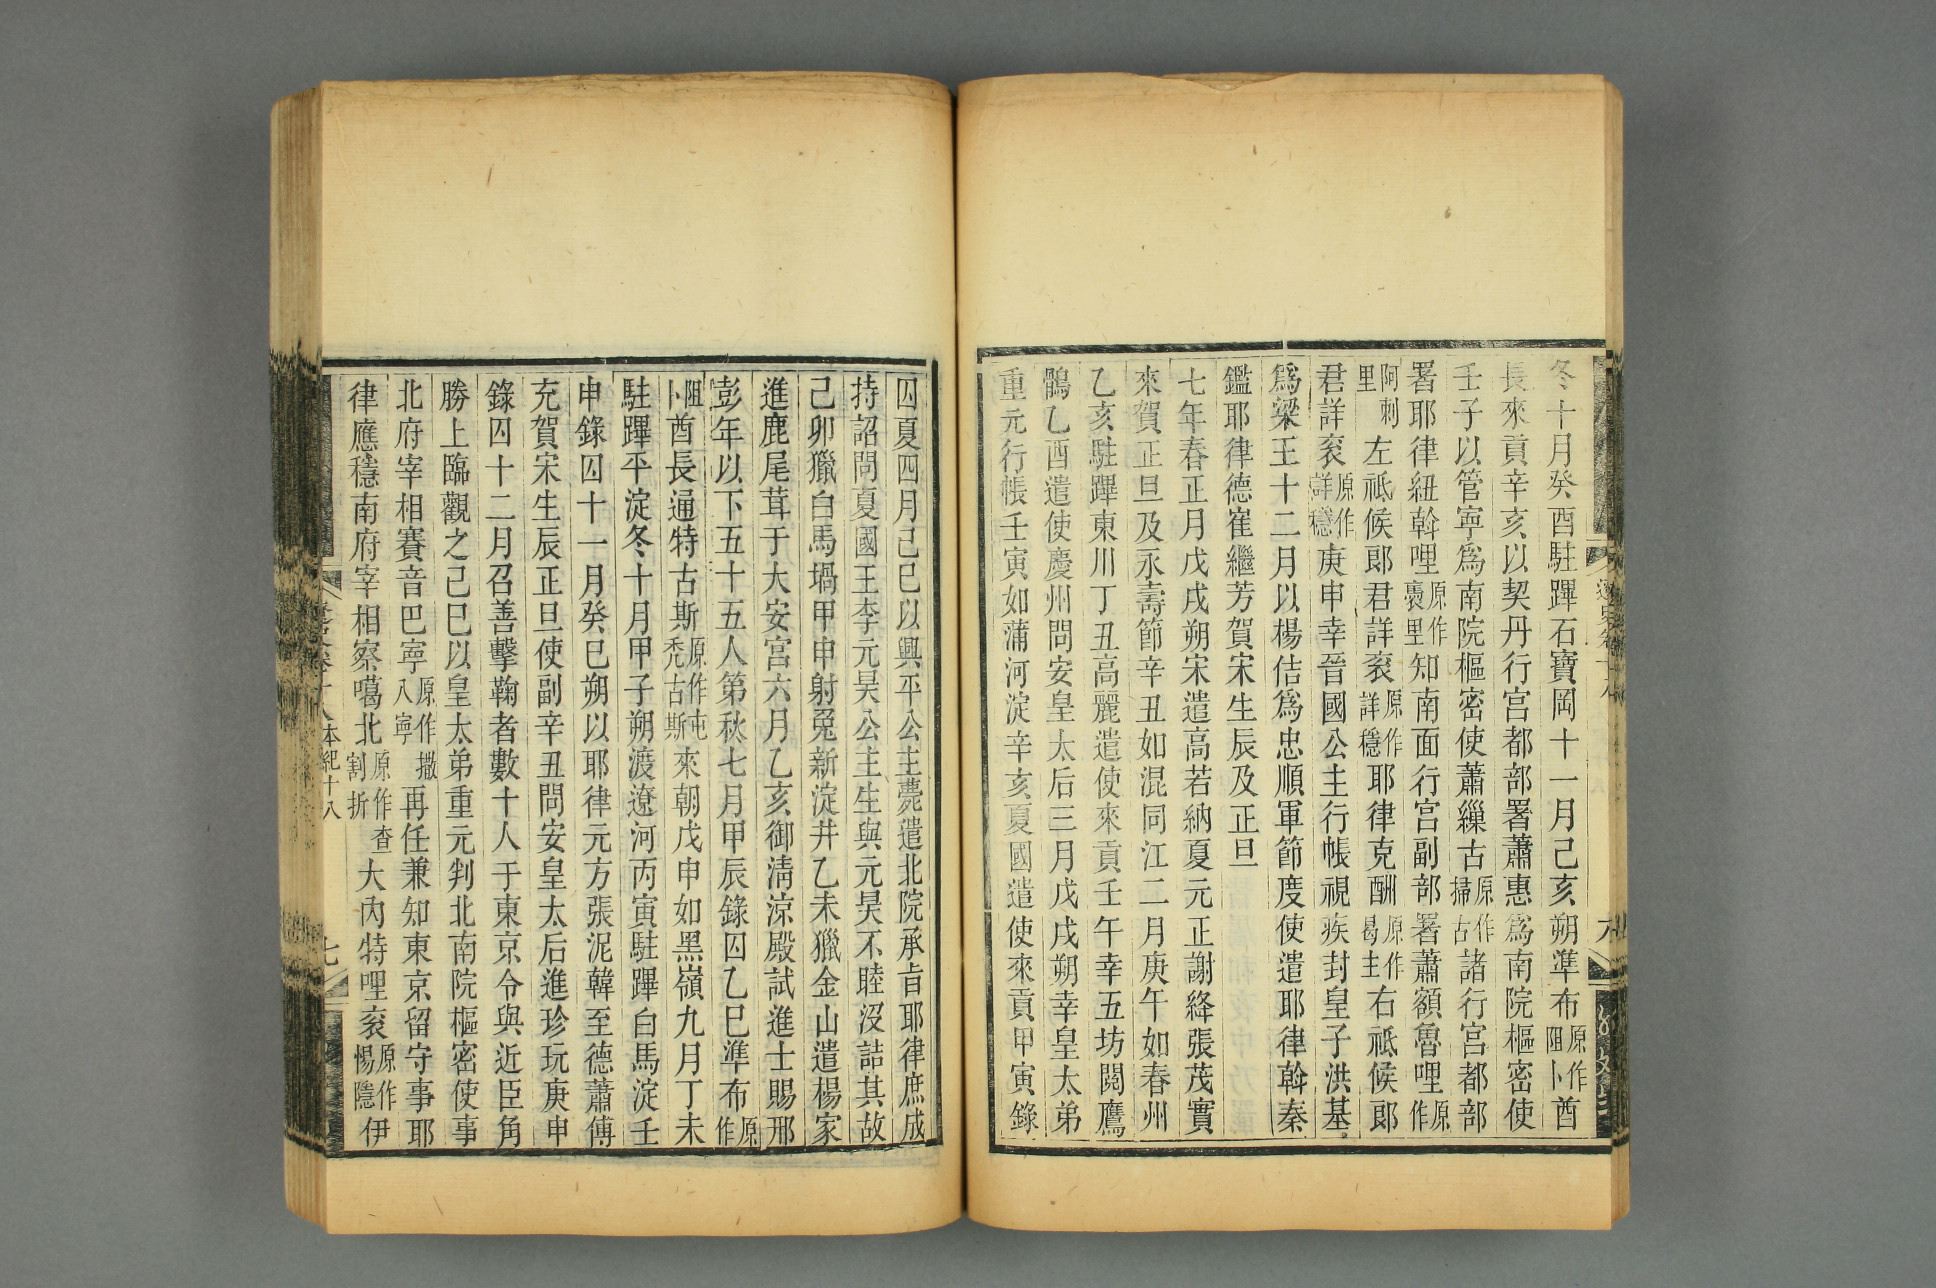 冬十月癸酉駐蹕石寶岡十一月己亥朔準布原作阻卜酋
長來貢辛亥以契丹行宮都部署蕭惠爲南院樞密使
壬子以管寧爲南院樞密使蕭繅古原作掃古諸行宮都部
署耶律紐斡哩原作褭里知南面行宮副部署蕭額魯哩原作
阿剌里左祗候郎君詳袞原作詳穩耶律克酬原作曷主右祗候郎
君詳袞原作詳穩庚申幸晉國公主行帳視疾封皇子洪基
爲梁王十二月以楊佶爲忠順軍節度使遣耶律斡秦
鑑耶律德崔繼芳賀宋生辰及正旦
七年春正月戊戌朔宋遣高若納夏元正謝絳張茂實
來賀正旦及永壽節辛丑如混同江二月庚午如春州
乙亥駐蹕東川丁丑高麗遣使來貢壬午幸五坊閱鷹
鶻乙酉遣使慶州問安皇太后三月戊戌朔幸皇太弟
重元行帳壬寅如蒲河淀辛亥夏國遣使來貢甲寅錄
遼史卷十八
六
囚夏四月己巳以興平公主薨遣北院承旨耶律庶成
持詔問夏國王李元昊公主生與元昊不睦沒詰其故
己卯獵白馬堝甲申射兔新淀井乙未獵金山遣楊家
進鹿尾茸于大安宮六月乙亥御淸涼殿試進士賜邢
彭年以下五十五人第秋七月甲辰錄囚乙巳準布原作
阻卜酋長通特古斯原作屯禿古斯來朝戊申如黑嶺九月丁未
駐蹕平淀冬十月甲子朔渡遼河丙寅駐蹕白馬淀壬
申錄囚十一月癸巳朔以耶律元方張泥韓至德蕭傅
充賀宋生辰正旦使副辛丑問安皇太后進珍玩庚申
錄囚十二月召善擊鞠者數十人于東京令與近臣角
勝上臨觀之己巳以皇太弟重元判北南院樞密使事
北府宰相賽音巴寧原作撒八寧再任兼知東京留守事耶
律應穩南府宰相察噶北原作查割折大內特哩袞原作惕隱伊
遼史卷十八 本紀十八
七